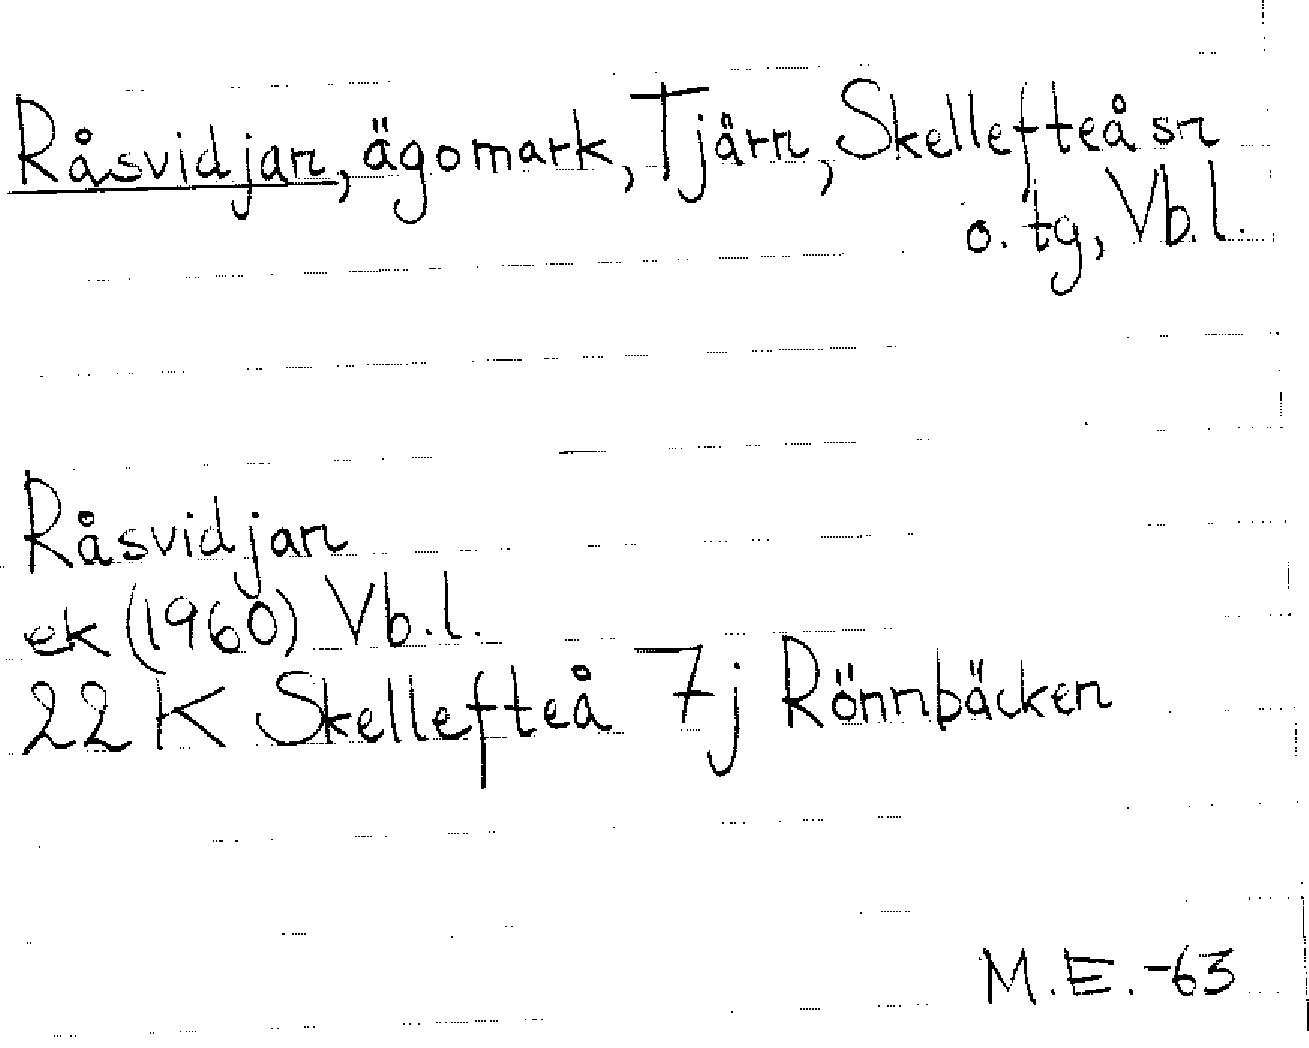 Råsvidjan, ägomark, Tjärn, Skellefteå sn
o. tg, Vb.l.
Råsvidjan
ek (1960) Vb.l.
22 K Skellefteå 7j Rönnbäcken
M.E.-63